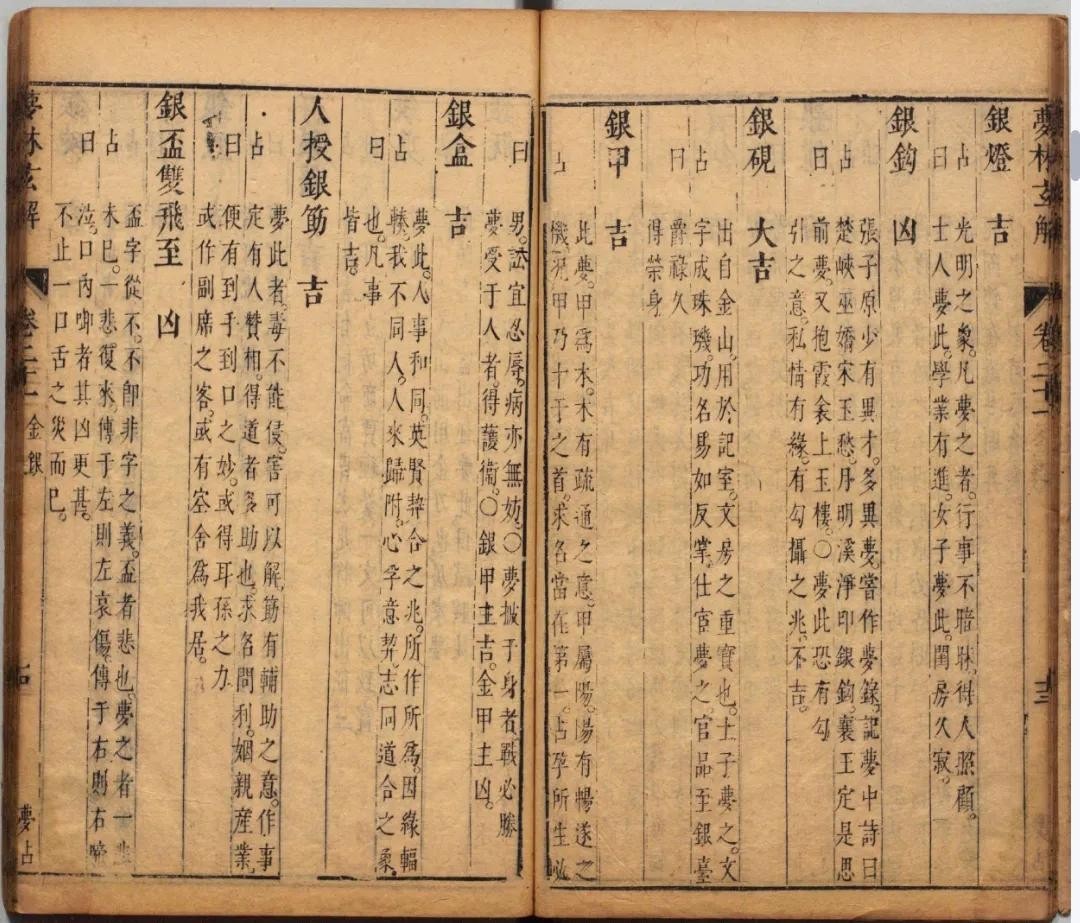 夢林玄解 卷二十一 十三
銀燈 吉
占 光明之象。凡夢之者。行事不暗昧。得人照顧。
曰 士人夢此。學業有進。女子夢此。閨房久寂。
銀鈎 凶
張子原少有異才。多異夢。嘗作夢錄。記夢中詩曰
占 楚峽巫嬌宋玉愁。月明溪淨印銀鈎。襄王定是思
曰 前夢。又抱霞衾上玉樓。○夢此恐有勾
引之意。私情有緣。有勾攝之兆。不吉。
銀硯 大吉
出自金山。用於記室。文房之重寶也。士子夢之。文
占 字成珠璣。功名易如反掌。仕宦夢之。官品至銀臺
曰 爵祿久
得榮身
銀甲 吉
此夢。甲爲木。木有疏通之意。甲屬陽。陽有暢遂之
占 機。況甲乃十干之首。求名當在第一。占孕所生必
曰 男。訟宜忍辱。病亦無妨。○夢披于身者。戰必勝
夢受于人者。得護衞。○銀甲主吉。金甲主凶。
銀盒 吉
夢此。人事和同。英賢契合之兆。所作所爲。因緣輻
占 輳。我不同人。人來歸附。心孚意契。志同道合之象
曰 也。凡事
皆吉。
人授銀筯 吉
夢此者。毒不能侵。害可以解。筯有輔助之意。作事
占 定有人贊相。得道者多助也。求名問利。姻親産業
曰 便有到手到口之妙。或得耳孫之力
或作副席之客。或有空舍爲我居。
銀盃雙飛至 凶
盃字從不。不卽非字之義。盃者悲也。夢之者一悲
占 未已。一悲復來。傳于左則左哀傷。傳于右則右啼
曰 泣。口內啣者其凶更甚。
不止一口舌之災而已。
夢林玄解 卷二十一 金銀 夢占